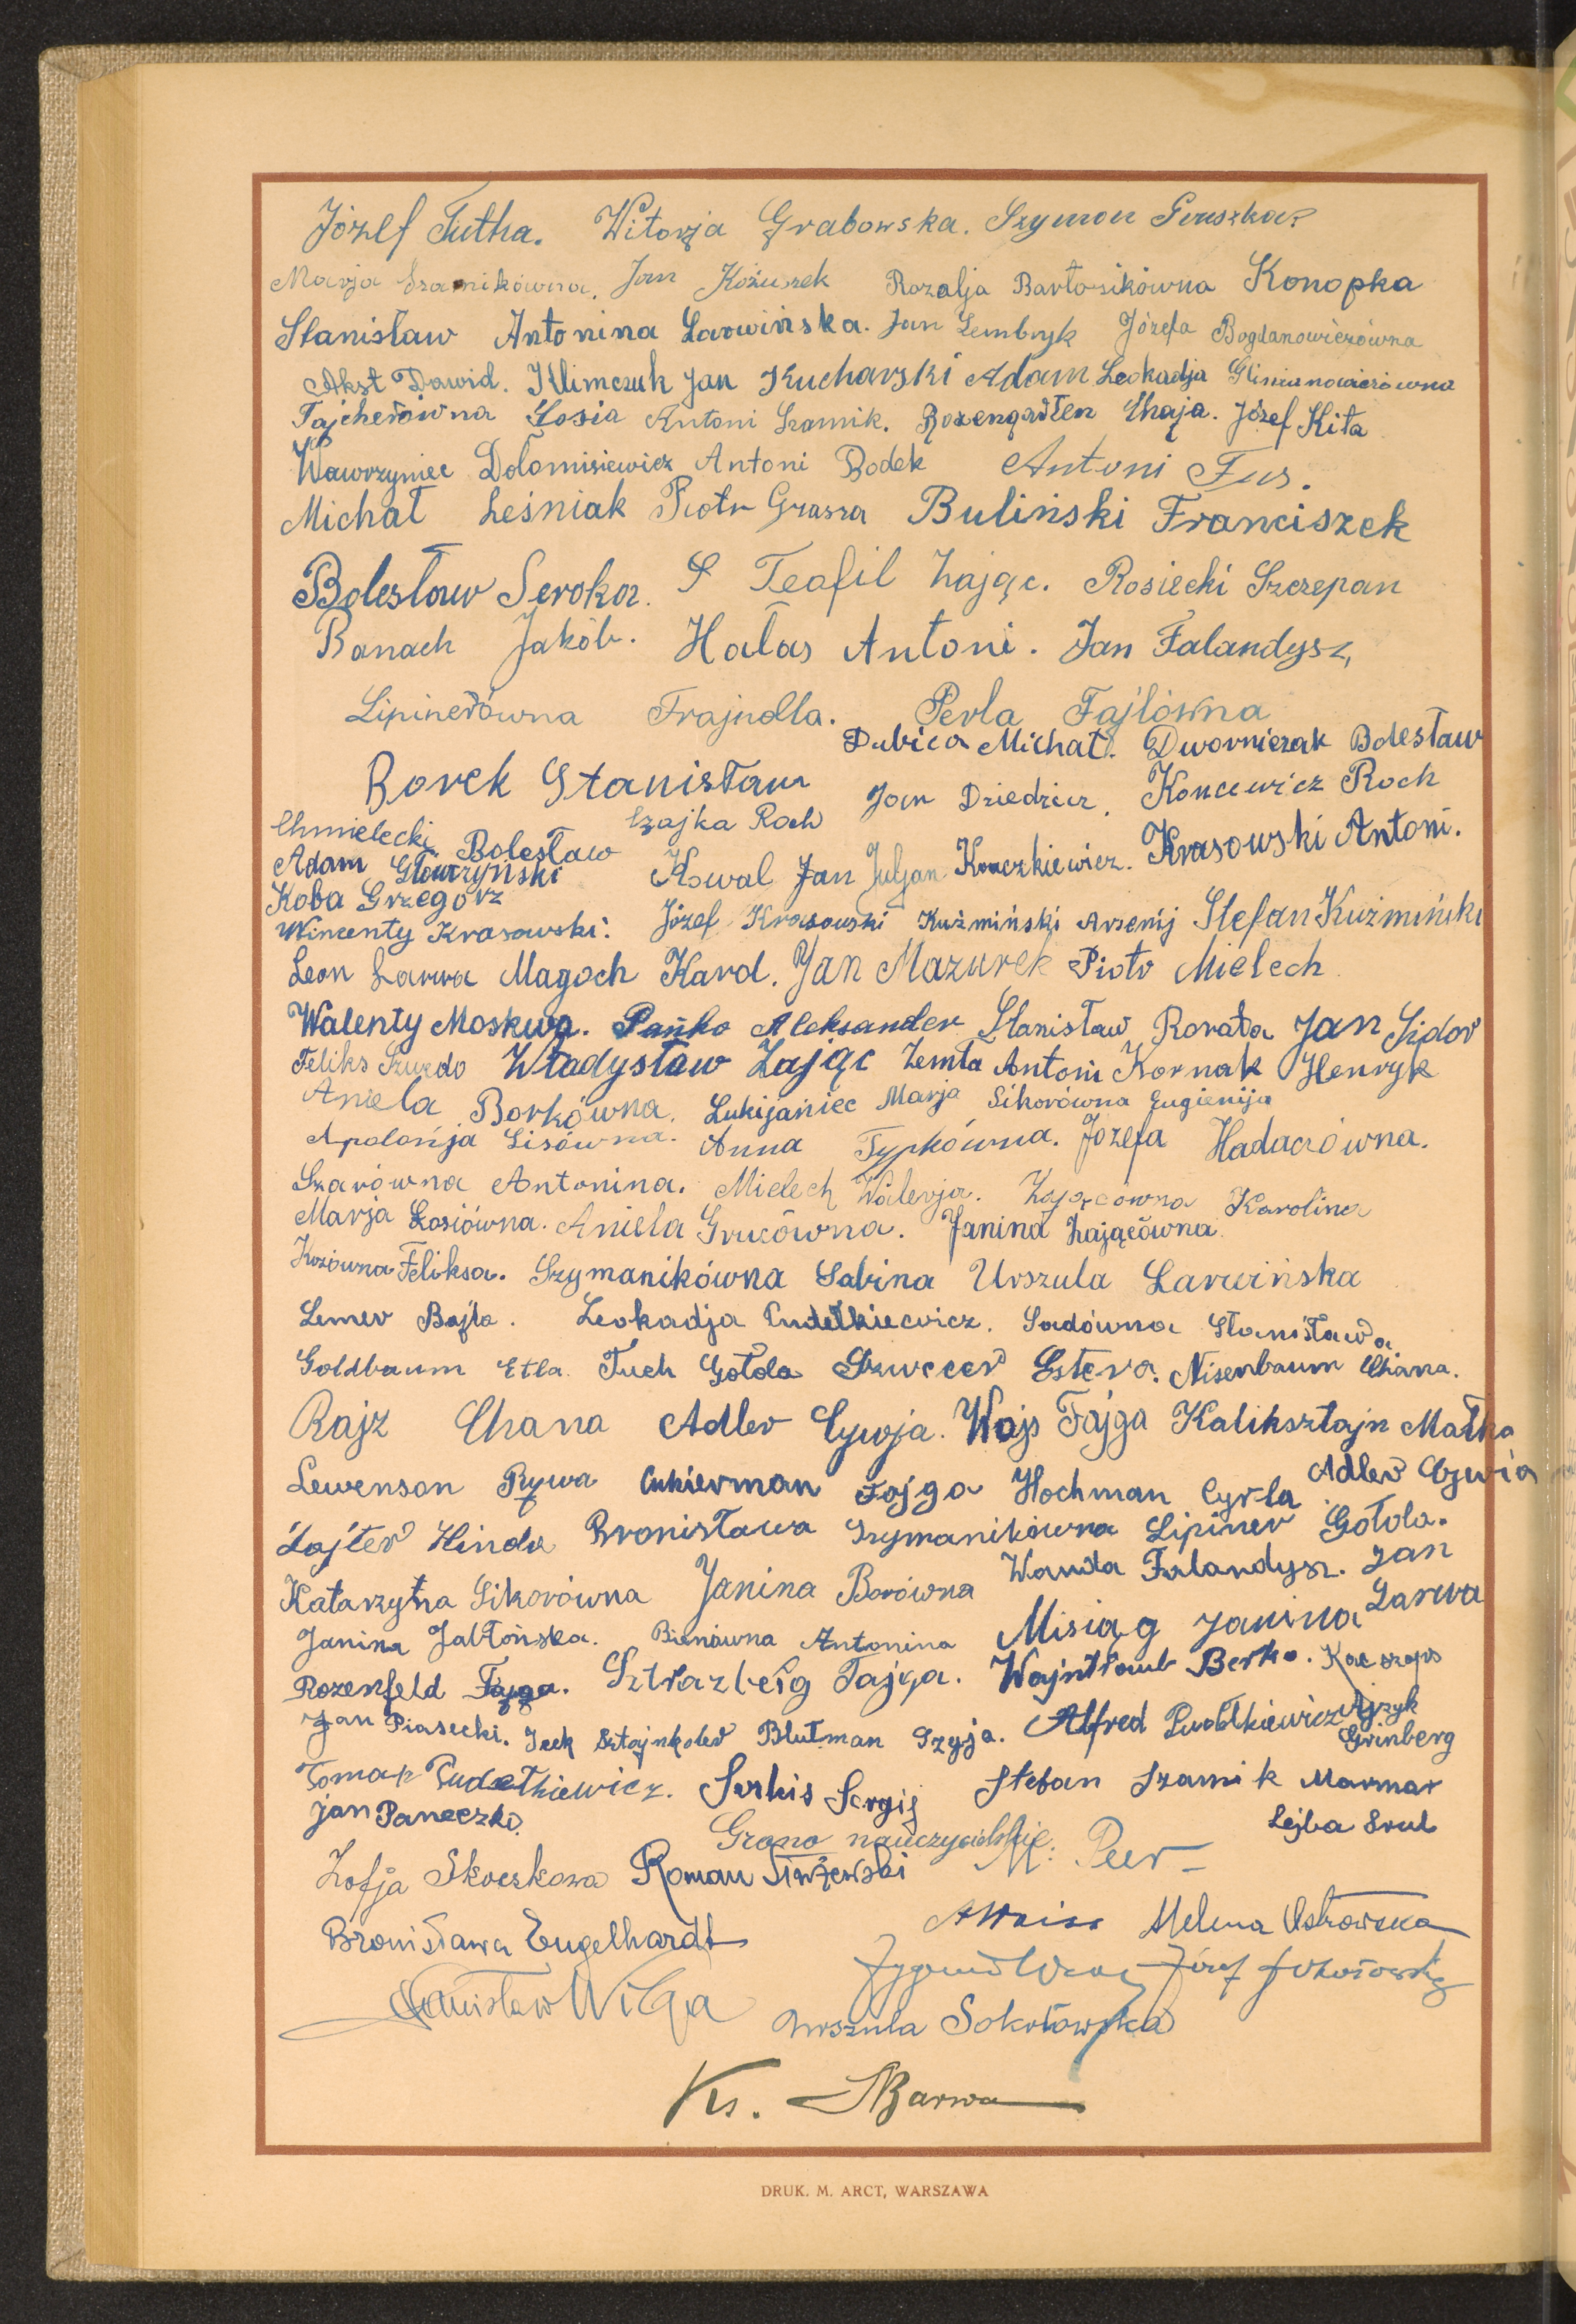 Józef Tutka. Witorja Grabowska. Szymon
Marja Szamikówna. Jan Kożuszek Rozalja Bartosikówna Konopka
Stanisław Antonina Larwińska. Jan Lembryk Józefa Bogdanowiczówna
Akst Dawid. Klimczuk Jan Kucharski Adam Leokadja Glinianowiczówna
Tajcherówna Łosia Antoni Szamik. Rozengarten Chaja. Józef Kita
Wawrzyniec Dołomisiewicz Antoni Bodek Antoni Fus.
Michał Leśniak Piotr Grasza Buliński Franciszek
Bolesław Seroka. S Teafil Zając. Rosiecki Szczepan
Banach Jakób. Hałas Antoni. Jan Falandysz,
Lipinerówna Frajndla. Perla Fajlówna
Dubica Michał. Dworniczak Bolesław
Borek Stanisław Jan Dziedzicz. Koncewicz Roch
Chmielecki Bolesław Czajka Roch
Adam Główczyński Kowal Jan Juljan Konczkiewicz. Krasowski Antoni.
Koba Grzegorz
Wincenty Krasowski. Józef Krasowski Kuźmiński Arsenij Stefan Kuźmiński
Leon Larwa Magoch Karol. Jan Mazurek Piotr Mielech
Walenty Moskwa. Pańko Aleksander Stanisław Rorata Jan Sidor
Feliks Szuzdo Władysław Zając Zemła Antoni Kornak Henryk
Aniela Borkówna. Lukijaniec Marja Sikorówna Eugienija
Apolonja Lisówna. Anna Typkówna. Józefa Hadaczówna.
Szarówna Antonina. Mielech Walerja. Zającówna Karolina
Marja Łosiówna. Aniela Grucówna. Janina Zającówna.
Kozówna Feliksa. Szymanikówna Sabina Urszula Larwińska
Lemer Bajla. Leokadja Pudełkiewicz. Sadówna Stanisława
Goldbaum Etla. Tuch Gołda Szwecer Estera. Nisenbaum Chana.
Rajz Chana Adler Cywja. Wajs Fajga Kaliksztajn Małka
Lewenson Rywa Cukierman Fajga Hochman Cyrla Adler Cywia
Zajter Hinda Bronisława Szymanikówna Lipiner Gołda.
Katarzyna Sikorówna Janina Borówna Wanda Falandysz. Jan
Janina Jabłońska. Bieńówna Antonina Misiąg Janina Larwa
Rozenfeld Fajga. Sztrazberg Fajga. Wajntraub Berko.
Jan Piasecki. Icek Sztajnkoler Blutman Szyja. Alfred Pudełkiewicz Ajzyk
Grinberg
Tomasz Pudełkiewicz. Serkis Sergij Stefan Szamik Marmar
Jan Paneczko. Lejba Srul
Grono nauczycielskie: M. Peer
Zofja Skoczkowa Roman
A Weiss Helena Ostrowska
Bronisława Engelhardt
Zygmunt Józef
Stanisław Wilga Urszula Sokołowska
Ks. Barwa
DRUK. M. ARCT, WARSZAWA